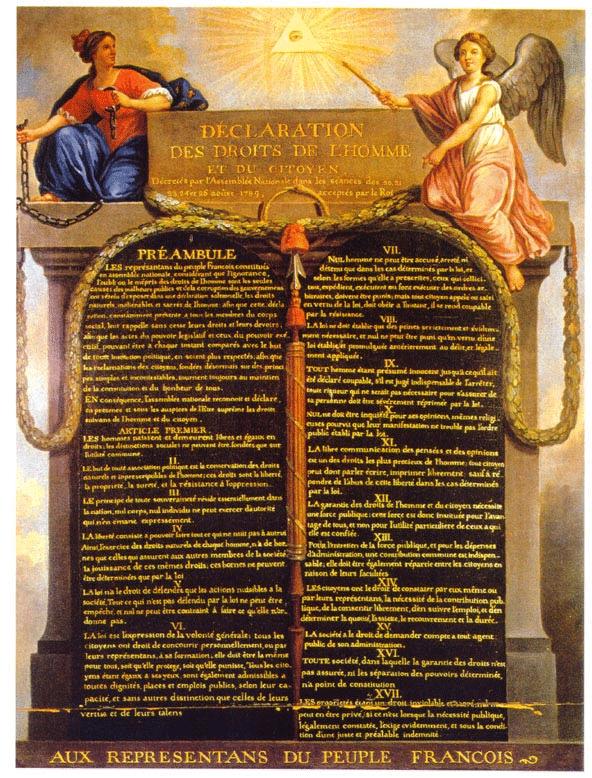 DÉCLARATION
DES DROITS DE L'HOMME
ET DU CITOYEN,
Décretés par l'Assemblée Nationale dans les séances des 20, 21
23, 24 et 26 août 1789, acceptés par le Roi
PRÉAMBULE
LES représentans du peuple François constitués
en assemblée nationale, considérant que l'ignorance,
l'oubli ou le mépris des droits de l'homme sont les seules
causes des malheurs publics et de la corruption des gouvernemens
ont résolu d'exposer dans une déclaration solemnelle, les droits
naturels, inaliénables et sacrés de l'homme; afin que cette décla
ration, constamment présente à tous les membres du corps
social, leur rappelle sans cesse leurs droits et leurs devoirs;
afin que les actes du pouvoir législatif et ceux du pouvoir exé
cutif, pouvant être à chaque instant comparés avec le but
de toute institution politique, en soient plus respectés; afin que
les réclamations des citoyens, fondées désormais sur des princi
pes simples et incontestables, tournent toujours au maintien
de la constitution et du bonheur de tous.
EN conséquence, l'assemblée nationale reconnoît et déclare,
en présence et sous les auspices de l'Etre suprême les droits
suivans de l'homme et du citoyen.
ARTICLE PREMIER.
LES hommes naissent et demeurent libres et égaux en
droits; les distinctions sociales ne peuvent être fondées que sur
l'utilité commune.
II.
LE but de toute association politique est la conservation des droits
naturels et imprescriptibles de l'homme; ces droits sont la liberté,
la propriété, la sureté, et la résistance à l'oppression.
III.
LE principe de toute souveraineté réside essentiellement dans
la nation, nul corps, nul individu ne peut exercer d'autorité
qui n'en émane expressément.
IV.
LA liberté consiste à pouvoir faire tout ce qui ne nuit pas à autrui
Ainsi, l'exercice des droits naturels de chaque homme, n'a de bor-
nes que celles qui assurent aux autres membres de la société
la jouissance de ces mêmes droits; ces bornes ne peuvent
être déterminées que par la loi
V.
LA loi n'a le droit de défendre que les actions nuisibles à la
société. Tout ce qui n'est pas défendu par la loi ne peut être
empêché, et nul ne peut être contraint à faire ce qu'elle n'or-
donne pas.
VI.
LA loi est l'expression de la volonté générale; tous les
citoyens ont droit de concourir personnellement, ou par
leurs représentans, à sa formation; elle doit être la même
pour tous, soit qu'elle protege, soit qu'elle punisse, Tous les cito-
yens étant égaux à ses yeux, sont également admissibles à
toutes dignités, places et emplois publics, selon leur ca-
pacité, et sans autres distinction que celles de leurs
vertus et de leurs talens
VII.
NUL homme ne peut être accusé, arreté ni
détenu que dans les cas déterminés par la loi, et
selon les formes qu'elle a prescrites, ceux qui sollici-
tent, expédient, exécutent ou font exécuter des ordres ar-
bitraires, doivent être punis; mais tout citoyen appelé ou saisi
en vertu de la loi, doit obéir à l'instant, il se rend coupable
par la résistance.
VIII.
LA loi ne doit établir que des peines strictement et évidem-
ment nécessaires, et nul ne peut être puni qu'en vertu d'une
loi établie et promulguée antérieurement au délit, et légale-
ment appliquée.
IX.
TOUT homme étant présumé innocent jusqu'à ce qu'il ait
été déclaré coupable, s'il est jugé indispensable de l'arrêter,
toute rigueur qui ne serait pas nécessaire pour s'assurer de
sa personne doit être sévèrement réprimée par la loi.
X.
NUL ne doit être inquiété pour ses opinions, mêmes religi-
euses pourvu que leur manifestation ne trouble pas l'ordre
public établi par la loi.
XI.
LA libre communication des pensées et des opinions
est un des droits les plus precieux de l'homme; tout citoyen
peut donc parler écrire, imprimer librement: sauf à ré-
pondre de l'abus de cette liberté dans les cas déterminés
par la loi.
XII.
LA garantie des droits de l'homme et du citoyen nécessite
une force publique; cette force est donc instituée pour l'avan-
tage de tous, et non pour l'utilité particuliere de ceux a qui
elle est confiée.
XIII.
POUR l'entretien de la force publique, et pour les dépenses
d'administration, une contribution commune est indispen-
sable; elle doit être également répartie entre les citoyens en
raison de leurs facultées
XIV.
LES citoyens ont le droit de constater par eux même ou
par leurs représentans, la nécessité de la contribution pub-
lique, de la consentir librement, d'en suivre l'emploi, et d'en
déterminer la quotité, l'assiette, le recouvrement et la durée.
XV.
LA société a le droit de demander compte a tout agent
public de son administration.
XVI.
TOUTE société, dans laquelle la garantie des droits n'est
pas assurée, ni la séparation des pouvoirs déterminée,
n'a point de constitution
XVII.
LES propriétés étant un droit inviolable et sacré, nul ne
peut en être privé, si ce n'est lorsque la nécessité publique,
légalement constatée, l'exige evidemment, et sous la condi-
tion d'une juste et préalable indemnité.
AUX REPRESENTANS DU PEUPLE FRANCOIS